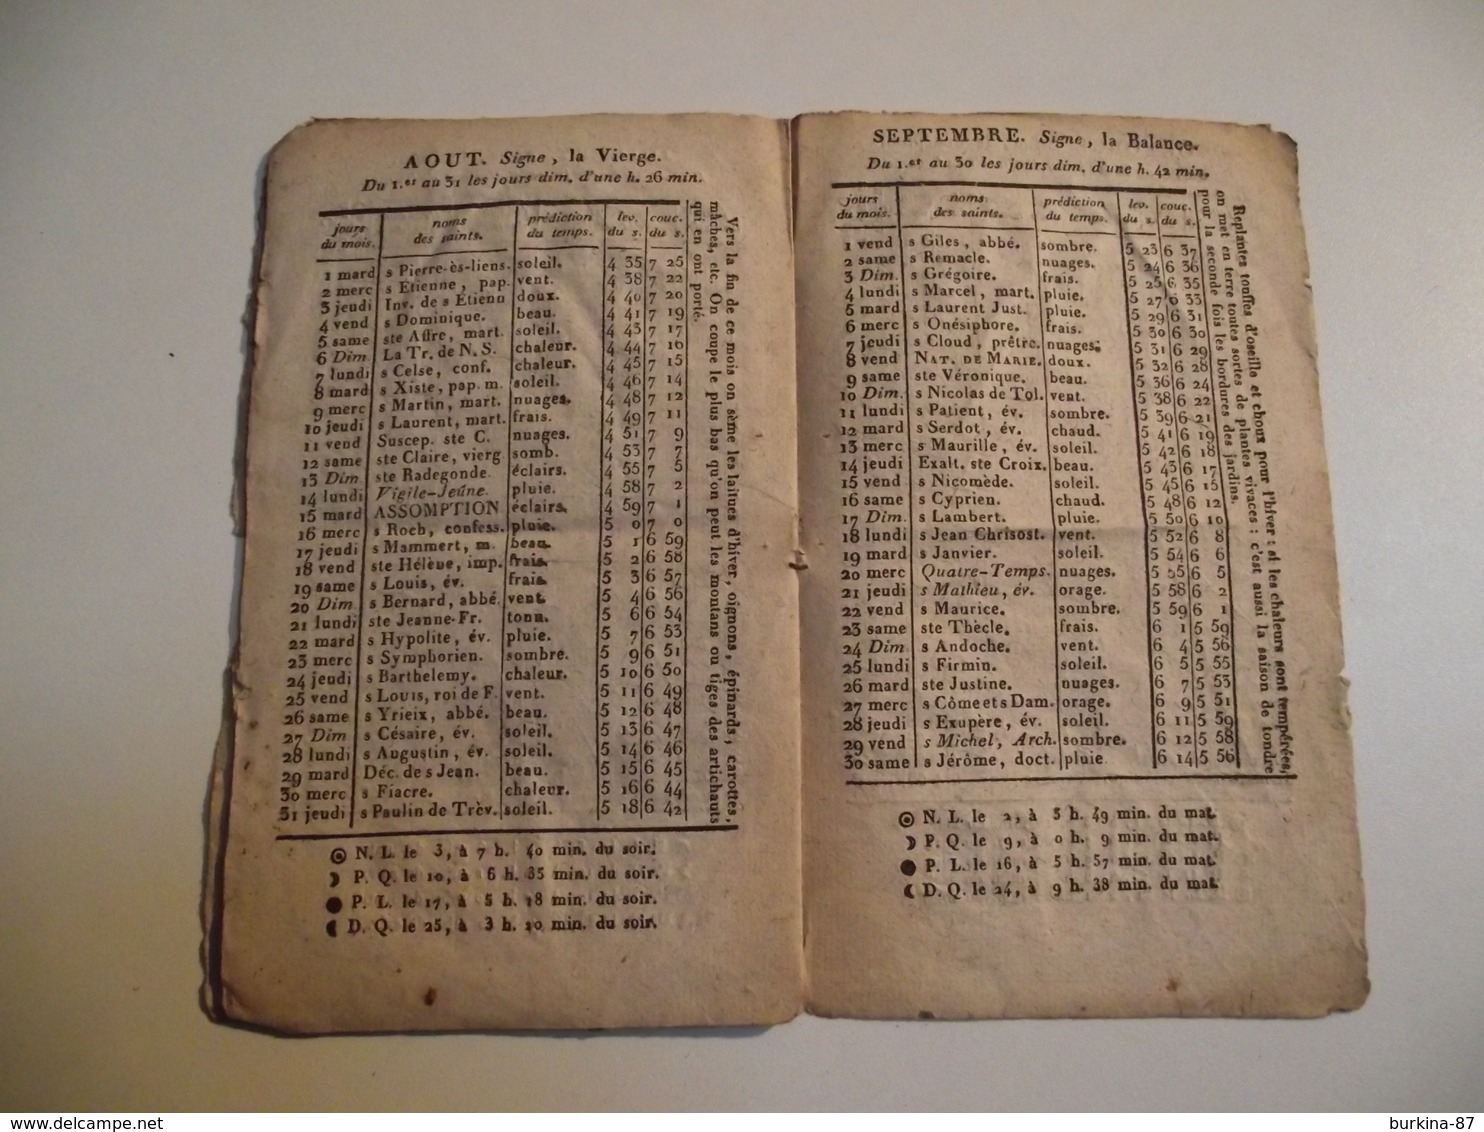 AOUT. Signe, la Vierge.
Du 1.er au 31 les jours dim. d'une h. 26 min.
jours du mois. noms des saints. prédiction du temps. lev. du s. couc. du s.
1 mard s Pierre-ès-liens. soleil. 4 35 7 25
2 merc s Etienne, pap. vent. 4 38 7 22
3 jeudi Inv. de s Etienn doux. 4 40 7 20
4 vend s Dominique. beau. 4 41 7 19
5 same ste Affre, mart. soleil. 4 43 7 17
6 Dim. La Tr. de N. S. chaleur. 4 44 7 16
7 lundi s Celse, conf. chaleur. 4 45 7 15
8 mard s Xiste, pap. m. soleil. 4 46 7 14
9 merc s Martin, mart. nuages. 4 48 7 12
10 jeudi s Laurent, mart. frais. 4 49 7 11
11 vend Suscep. ste C. nuages. 4 51 7 9
12 same ste Claire, vierg somb. 4 53 7 7
13 Dim. ste Radegonde. éclairs. 4 55 7 5
14 lundi Vigile-Jeûne. pluie. 4 58 7 2
15 mard ASSOMPTION éclairs. 4 59 7 1
16 merc s Roch, confess. pluie. 5 0 7 0
17 jeudi s Mammert, m. beau. 5 1 6 59
18 vend ste Hélène, imp. frais. 5 2 6 58
19 same s Louis, év. frais. 5 3 6 57
20 Dim. s Bernard, abbé. vent. 5 4 6 56
21 lundi ste Jeanne-Fr. tonn. 5 6 6 54
22 mard s Hypolite, év. pluie. 5 7 6 53
23 merc s Symphorien. sombre. 5 9 6 51
24 jeudi s Barthelemy. chaleur. 5 10 6 50
25 vend s Louis, roi de F. vent. 5 11 6 49
26 same s Yrieix, abbé. beau. 5 12 6 48
27 Dim s Césaire, év. soleil. 5 13 6 47
28 lundi s Augustin, év. soleil. 5 14 6 46
29 mard Déc. de s Jean. beau. 5 15 6 45
30 merc s Fiacre. chaleur. 5 16 6 44
31 jeudi s Paulin de Trèv. soleil. 5 18 6 42
Vers la fin de ce mois on sème les laitues d'hiver, oignons, épinards, carottes,
mâches, etc. On coupe le plus bas qu'on peut les montans ou tiges des artichauts
qui en ont porté.
N. L. le 3, à 7 h. 40 min. du soir.
P. Q. le 10, à 6 h. 35 min. du soir.
P. L. le 17, à 5 h. 18 min. du soir.
D. Q. le 25, à 3 h. 20 min. du soir.
SEPTEMBRE. Signe, la Balance.
Du 1.er au 30 les jours dim. d'une h. 42 min.
jours du mois. noms des saints. prédiction du temps. lev. du s. couc. du s.
1 vend s Giles, abbé. sombre. 5 23 6 37
2 same s Remacle. nuages. 5 24 6 36
3 Dim. s Grégoire. frais. 5 25 6 35
4 lundi s Marcel, mart. pluie. 5 27 6 33
5 mard s Laurent Just. pluie. 5 29 6 31
6 merc s Onésiphore. frais. 5 30 6 30
7 jeudi s Cloud, prêtre. nuages. 5 31 6 29
8 vend NAT. DE MARIE. doux. 5 32 6 28
9 same ste Véronique. beau. 5 36 6 24
10 Dim. s Nicolas de Tol. vent. 5 38 6 22
11 lundi s Patient, év. sombre. 5 39 6 21
12 mard s Serdot, év. chaud. 5 41 6 19
13 merc s Maurille, év. soleil. 5 42 6 18
14 jeudi Exalt. ste Croix. beau. 5 43 6 17
15 vend s Nicomède. soleil. 5 45 6 15
16 same s Cyprien. chaud. 5 48 6 12
17 Dim. s Lambert. pluie. 5 50 6 10
18 lundi s Jean Chrisost. vent. 5 52 6 8
19 mard s Janvier. soleil. 5 54 6 6
20 merc Quatre-Temps. nuages. 5 55 6 5
21 jeudi s Mathieu, év. orage. 5 58 6 2
22 vend s Maurice. sombre. 5 59 6 1
23 same ste Thècle. frais. 6 1 5 59
24 Dim s Andoche. vent. 6 4 5 56
25 lundi s Firmin. soleil. 6 5 5 55
26 mard ste Justine. nuages. 6 7 5 53
27 merc s Côme et s Dam. orage. 6 9 5 51
28 jeudi s Exupère, év. soleil. 6 11 5 59
29 vend s Michel, Arch. sombre. 6 12 5 58
30 same s Jérôme, doct. pluie 6 14 5 56
Replantes touffes d'oseille et choux pour l'hiver: si les chaleurs sont tempérées,
on met en terre toutes sortes de plantes vivaces: c'est aussi la saison de tondre
pour la seconde fois les bordures des jardins.
N. L. le 2, à 5 h. 49 min. du mat.
P. Q. le 9, à 0 h. 9 min. du mat.
P. L. le 16, à 5 h. 57 min. du mat.
D. Q. le 24, à 9 h. 38 min. du mat.
burkina-87